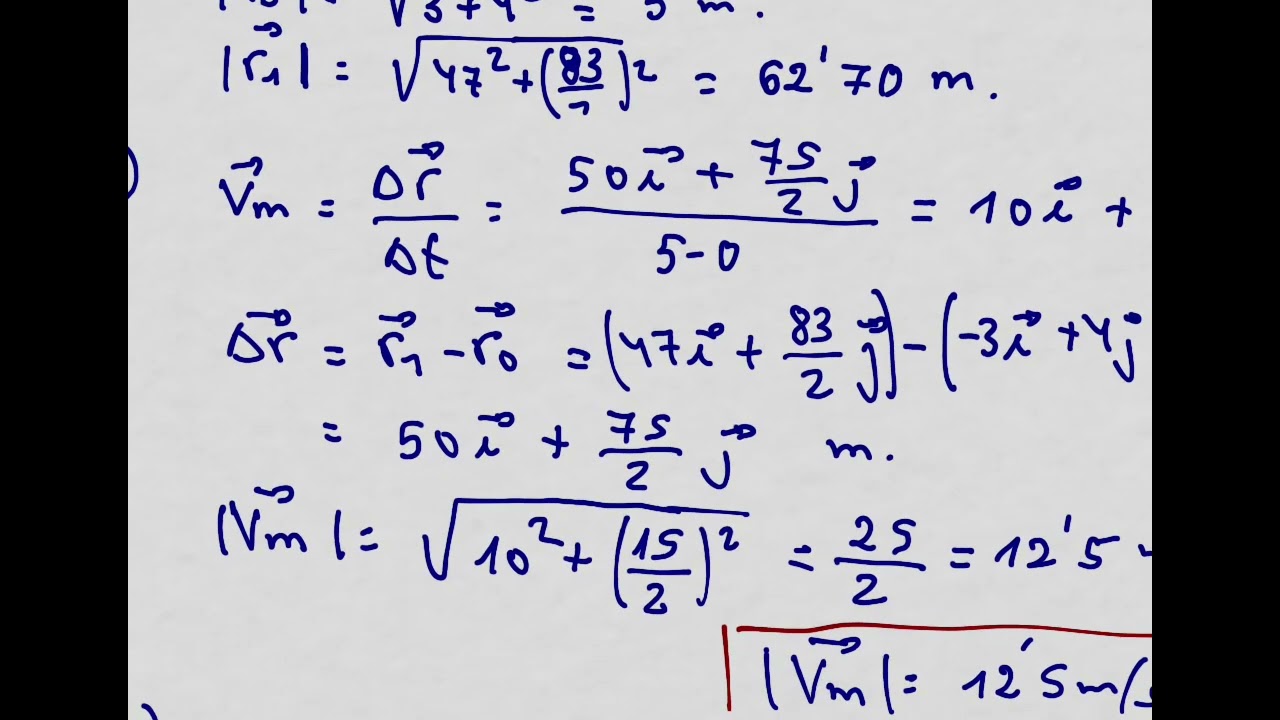 √3+4² = 5 m.
|r⃗₁| = √(47² + (83/2)²) = 62'70 m.
) V⃗m = Δr⃗/Δt = (50i⃗ + 75/2 j⃗)/(5-0) = 10i⃗ +
Δr⃗ = r⃗₁ - r⃗₀ = (47i⃗ + 83/2 j⃗) - (-3i⃗ + 4j⃗
= 50i⃗ + 75/2 j⃗ m.
|V⃗m| = √(10² + (15/2)²) = 25/2 = 12'5
|V⃗m| = 12'5 m/s